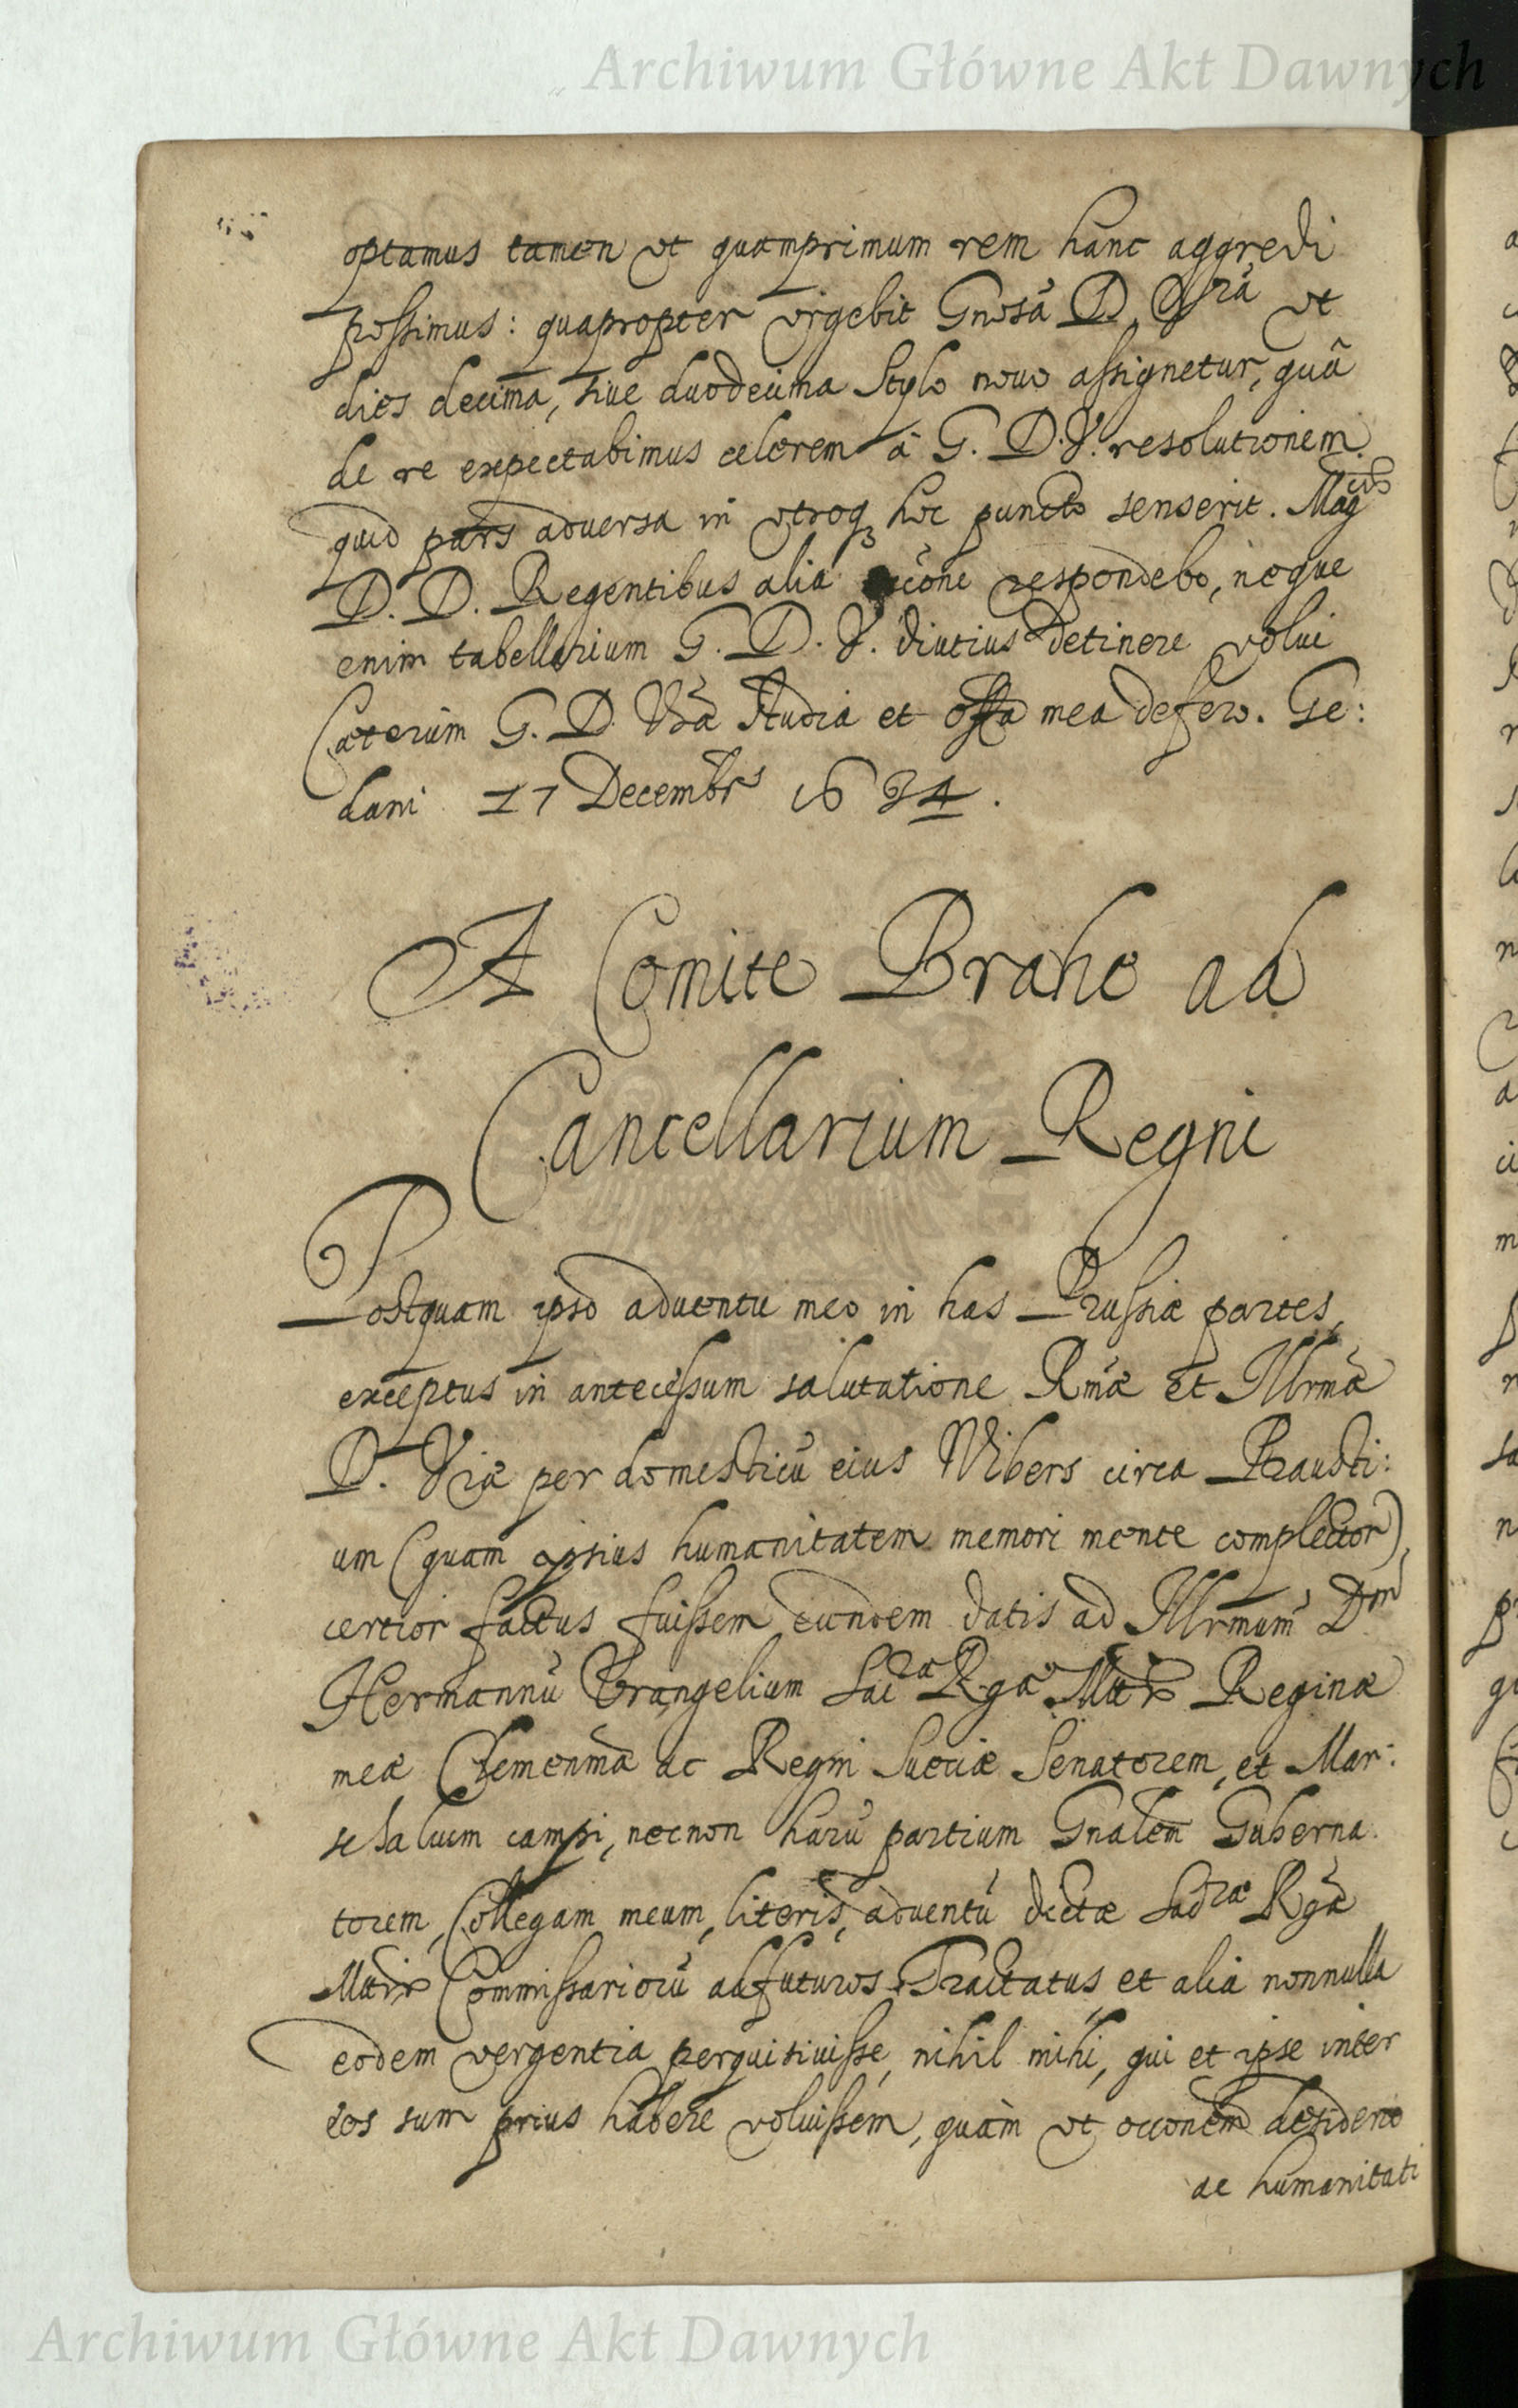 Archiwum Główne Akt Dawnych
optamus tamen vt quamprimum rem hanc aggredi
possimus: quapropter vrgebit Gnosã D. Vrã vt
dies decima, siue duodecima Stylo nouo assignetur, quã
de re expectabimus celerem à G. D. V. resolutionem
quid pars aduersa in vtroq hoc puncto senserit. Magcis
D. D. Regentibus aliã occõne respondebo, neque
enim tabellarium G. D. V. diutius detinere volui
Cæterum G. D. Vræ Studia et offa mea defero. Ge:
dani 17 Decembrs 1634.
A Comite Brahe ad
Cancellarium Regni
Postquam ipso aduentu meo in has Prussiæ partes,
exceptus in antecessum salutatione Rmæ et Illrmæ
D. Vræ per domesticũ eius Wibers circa Prausti:
um (quam ipsius humanitatem memori mente complector),
certior factus fuissem eundem datis ad Illrmum Dm
Hermannũ Vrangelium Sacræ Rgæ Mttis Reginæ
meæ Clemenmæ ac Regni Sueciæ Senatorem, et Mar:
schalcum campi, necnon harũ partium Gnalem Guberna
torem, Collegam meum, literis, aduentũ dictæ Sacræ Rgæ
Mttis Commissariorũ ad futuros Tractatus et alia nonnulla
eodem vergentia perquisiuisse, nihil mihi, qui et ipse inter
eos sum prius habere voluissem, quàm vt occonem desiderio
ac humanitati
Archiwum Główne Akt Dawnych